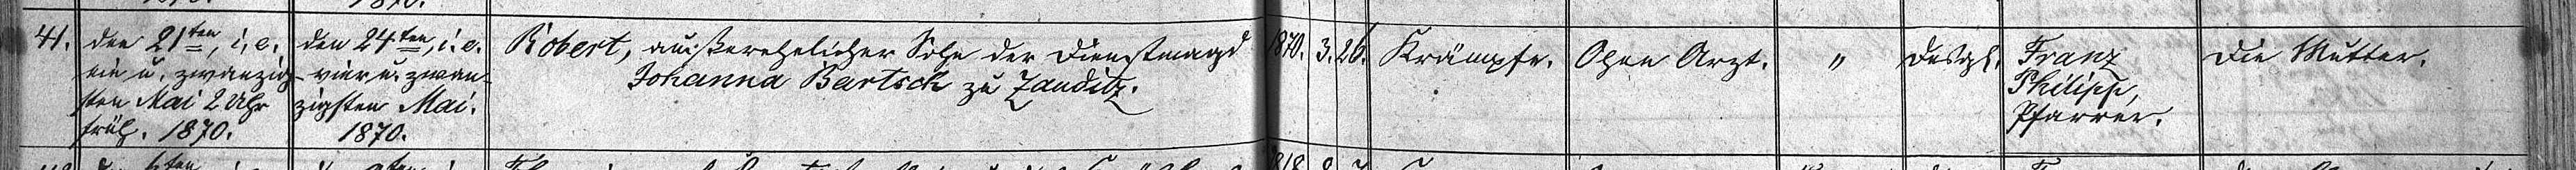 41. den 21ten, i. e. ein u. zwanzig-
sten Mai 2 Uhr
früh. 1870.
den 24ten, i. e.
vier u. zwan-
zigsten Mai.
1870.
Robert, außerehelicher Sohn der Dienstmagd
Johanna Bartsch zu Zauditz.
1870. 3. 26. Krämpfe. Ohne Arzt. " Desgl.
Franz
Philipp,
Pfarrer.
Die Mutter.